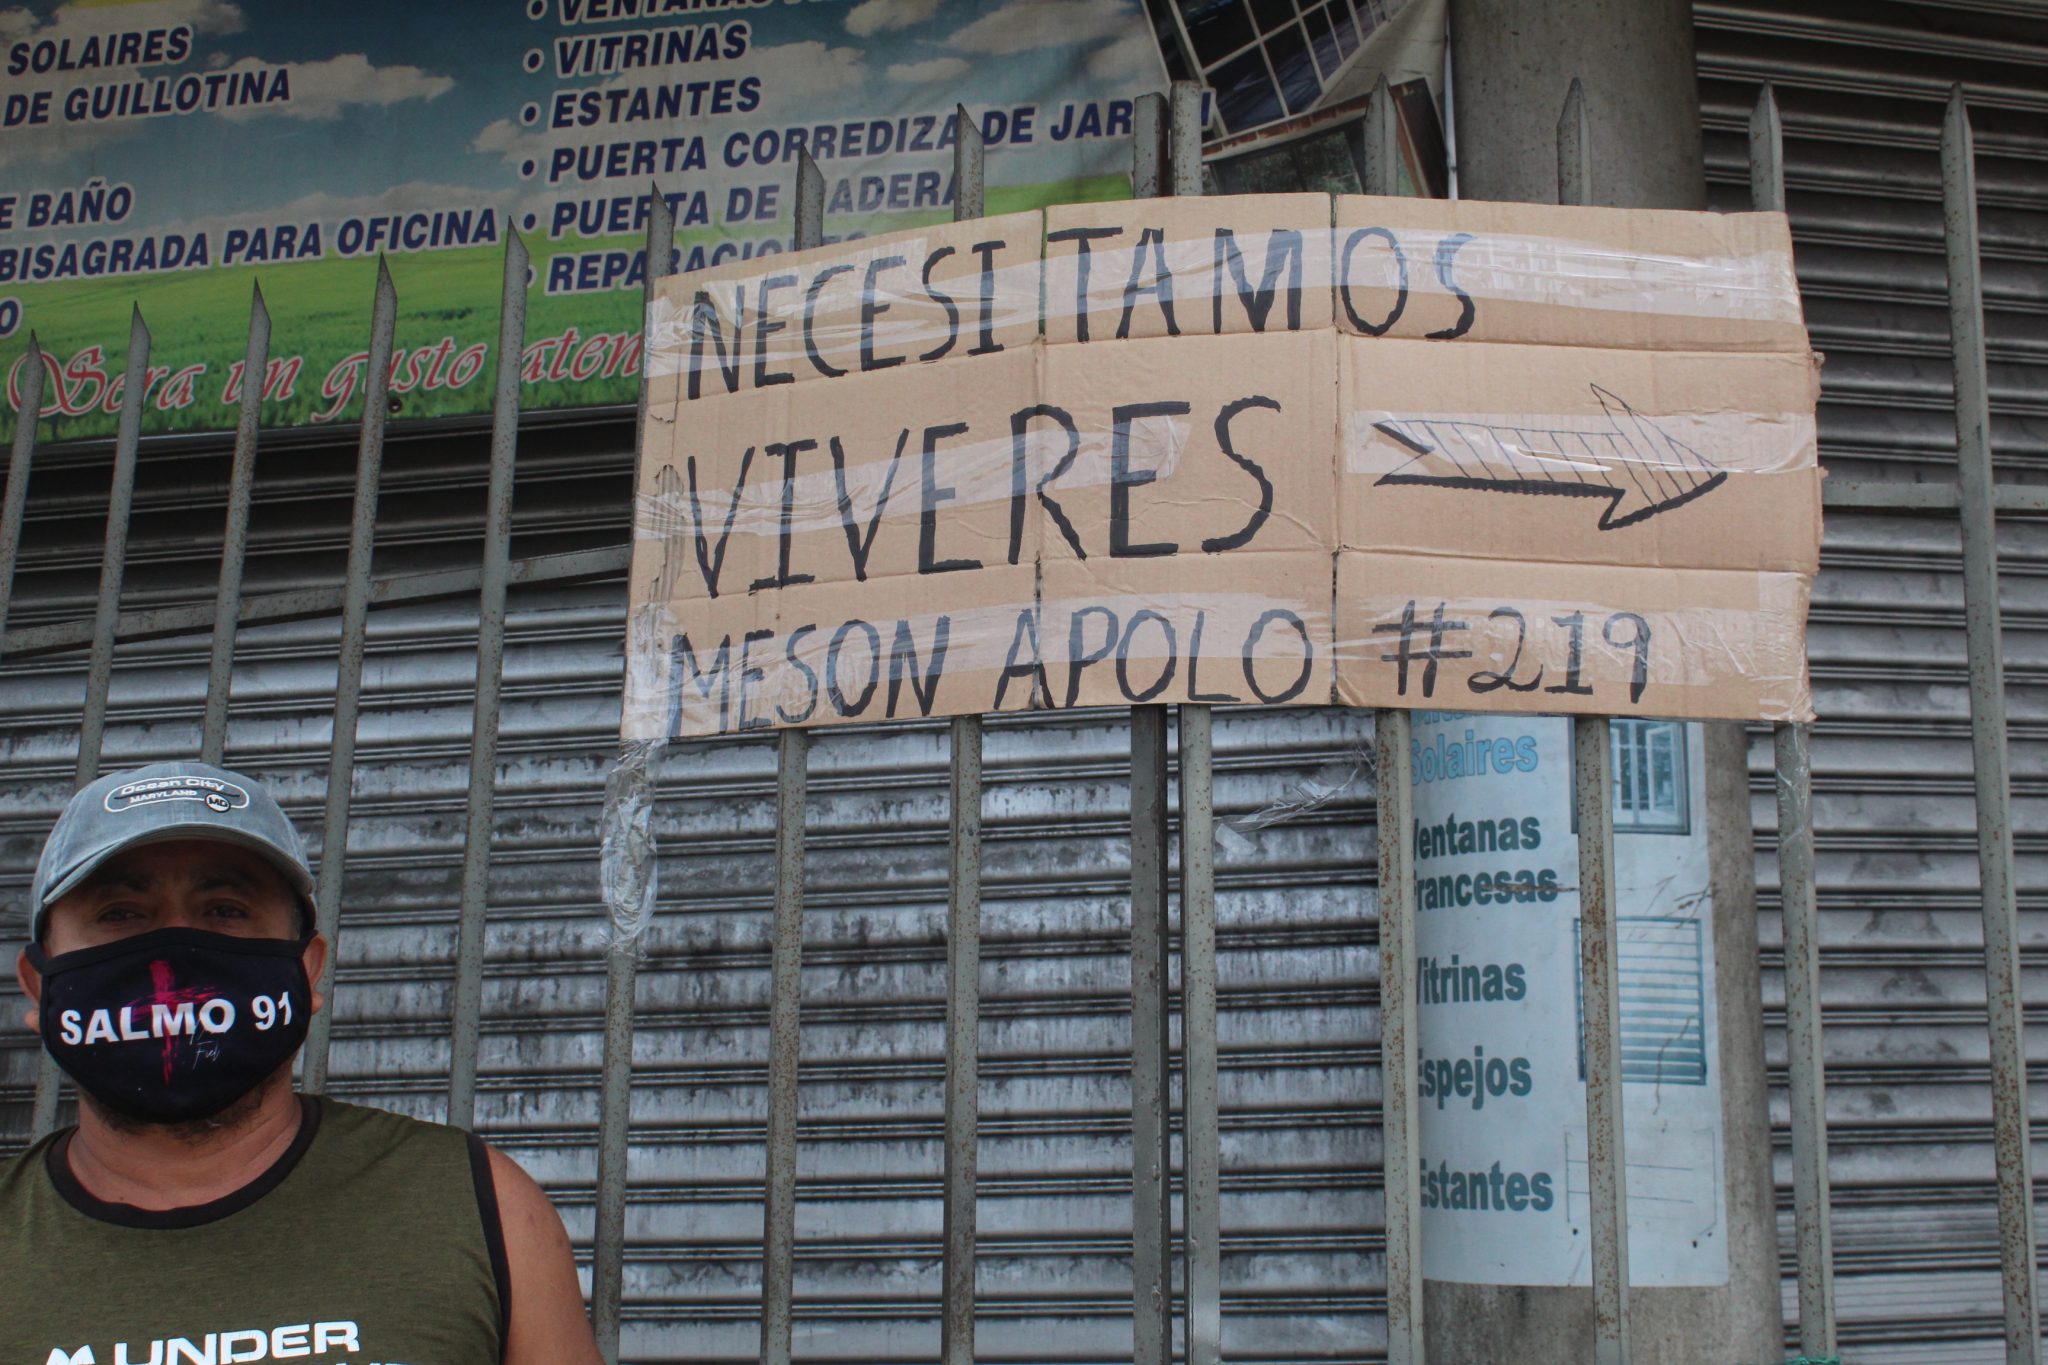 SOLAIRES
DE GUILLOTINA
E BAÑO
BISAGRADA PARA OFICINA
O
Sera un gusto aten
• VENTANAS
• VITRINAS
• ESTANTES
• PUERTA CORREDIZA DE JAR
• PUERTA DE MADERA
• REPARACIONES
NECESITAMOS
VIVERES
MESON APOLO #219
Solaires
Ventanas
Francesas
Vitrinas
Espejos
Estantes
Ocean City
MARYLAND MD
SALMO 91
Fiel
UNDER